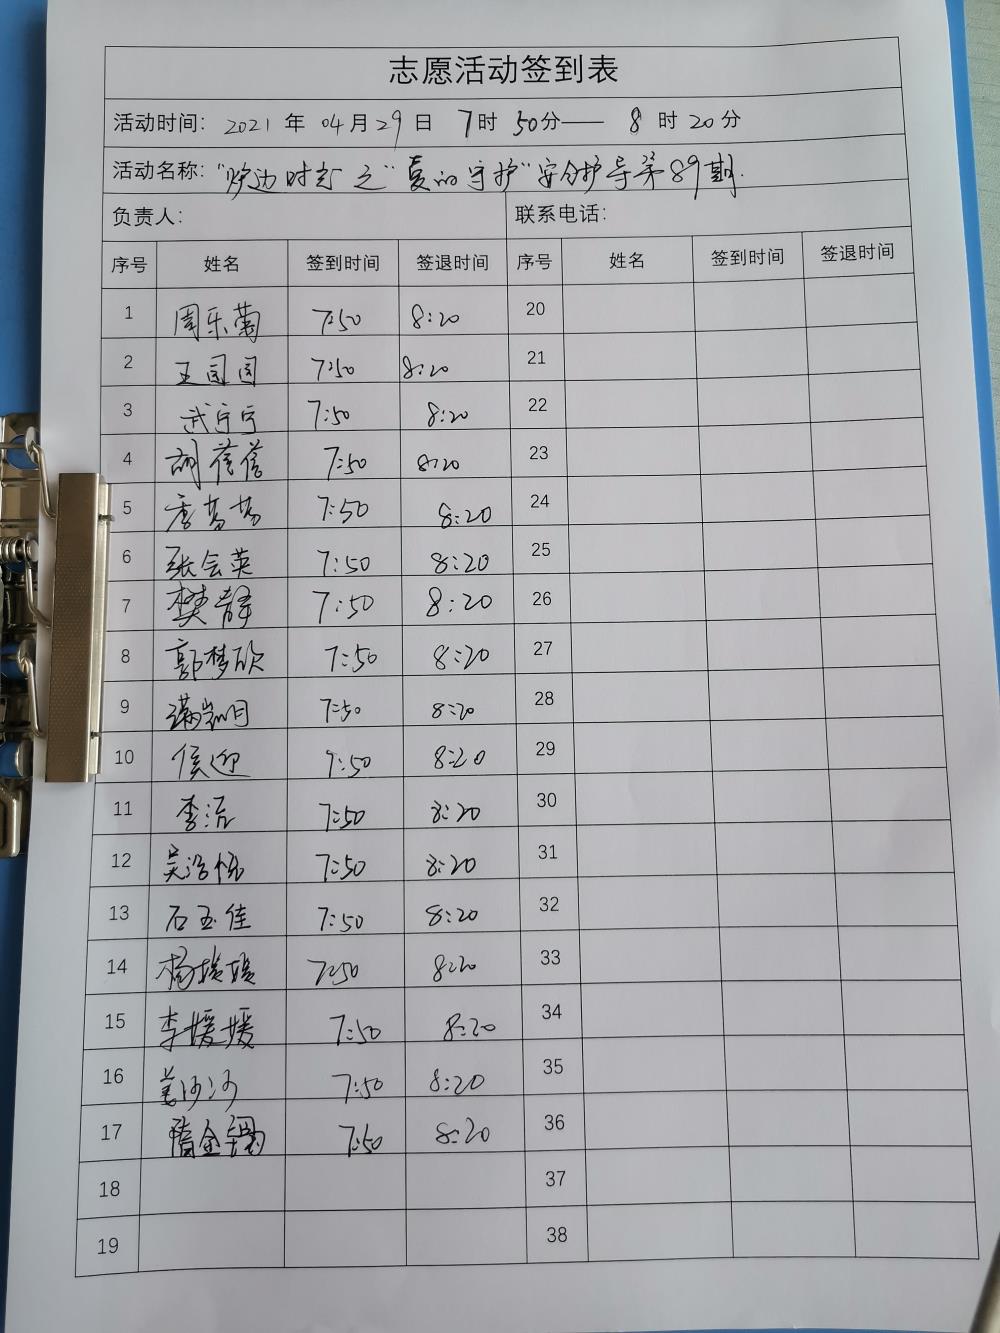 志愿活动签到表
活动时间: 2021 年 04 月 29 日 7时 50分—— 8 时 20 分
活动名称: 之"爱的守护"安全护导第89期.
负责人: 联系电话:
序号 姓名 签到时间 签退时间 序号 姓名 签到时间 签退时间
1 周乐菊 7:50 8:20 20
2 王园园 7:50 8:20 21
3 武宁宁 7:50 8:20 22
4 胡蓓蓓 7:50 8:20 23
5 7:50 8:20 24
6 张会英 7:50 8:20 25
7 樊静 7:50 8:20 26
8 郭梦欣 7:50 8:20 27
9 满 7:50 8:20 28
10 侯迎 7:50 8:20 29
11 李洁 7:50 8:20 30
12 吴 7:50 8:20 31
13 石玉佳 7:50 8:20 32
14 杨媛媛 7:50 8:20 33
15 李媛媛 7:50 8:20 34
16 姜沙沙 7:50 8:20 35
17 隋金 7:50 8:20 36
18 37
19 38